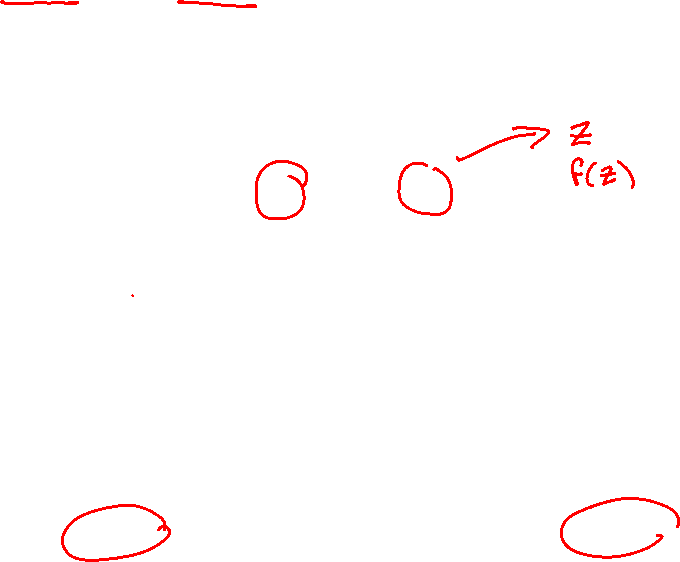 z
f(z)